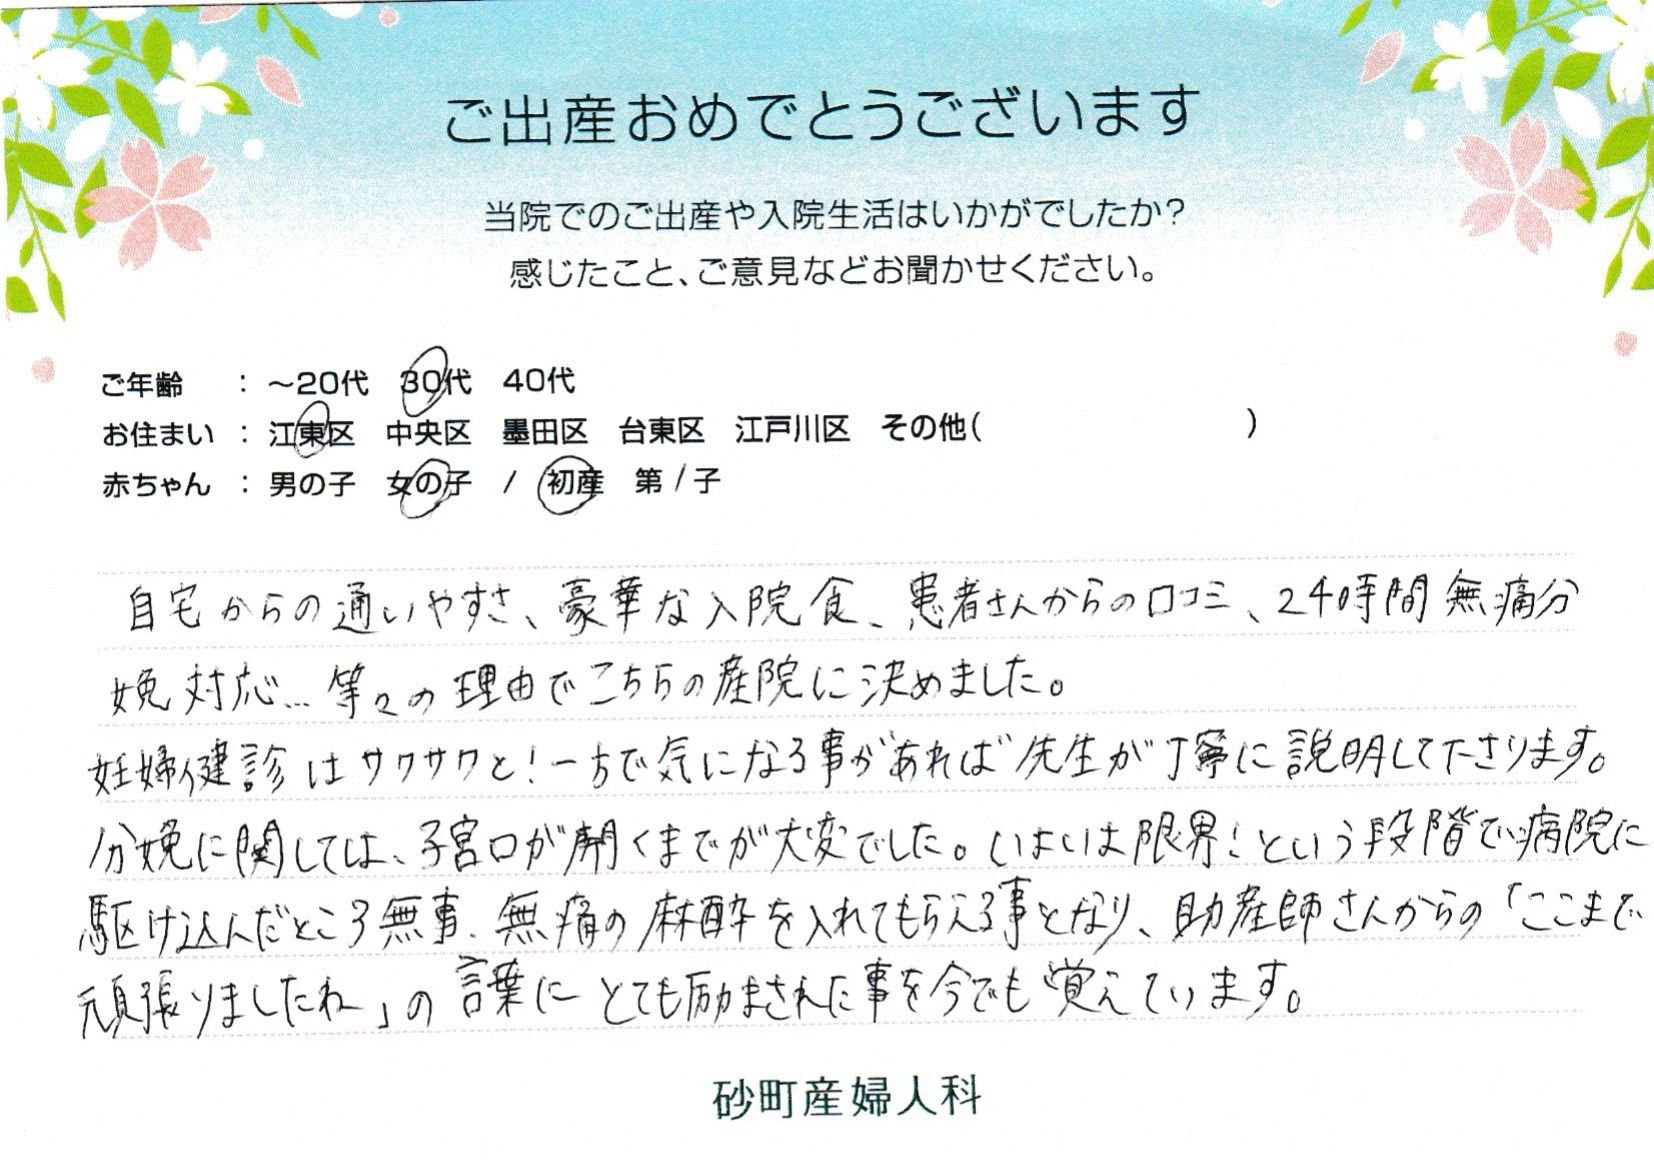 ご出産おめでとうございます
当院でのご出産や入院生活はいかがでしたか?
感じたこと、ご意見などお聞かせください。
ご年齢 : ～20代 30代 40代
お住まい : 江東区 中央区 墨田区 台東区 江戸川区 その他( )
赤ちゃん : 男の子 女の子 / 初産 第 / 子
自宅からの通いやすさ、豪華な入院食、患者さんからの口コミ、24時間無痛分
娩対応…等々の理由でこちらの産院に決めました。
妊婦健診はサクサクと!一方で気になる事があれば先生が丁寧に説明して下さります。
分娩に関しては、子宮口が開くまでが大変でした。いよいよ限界!という段階で病院に
駆け込んだところ無事、無痛の麻酔を入れてもらえる事となり、助産師さんからの「ここまで
頑張りましたね」の言葉にとても励まされた事を今でも覚えています。
砂町産婦人科